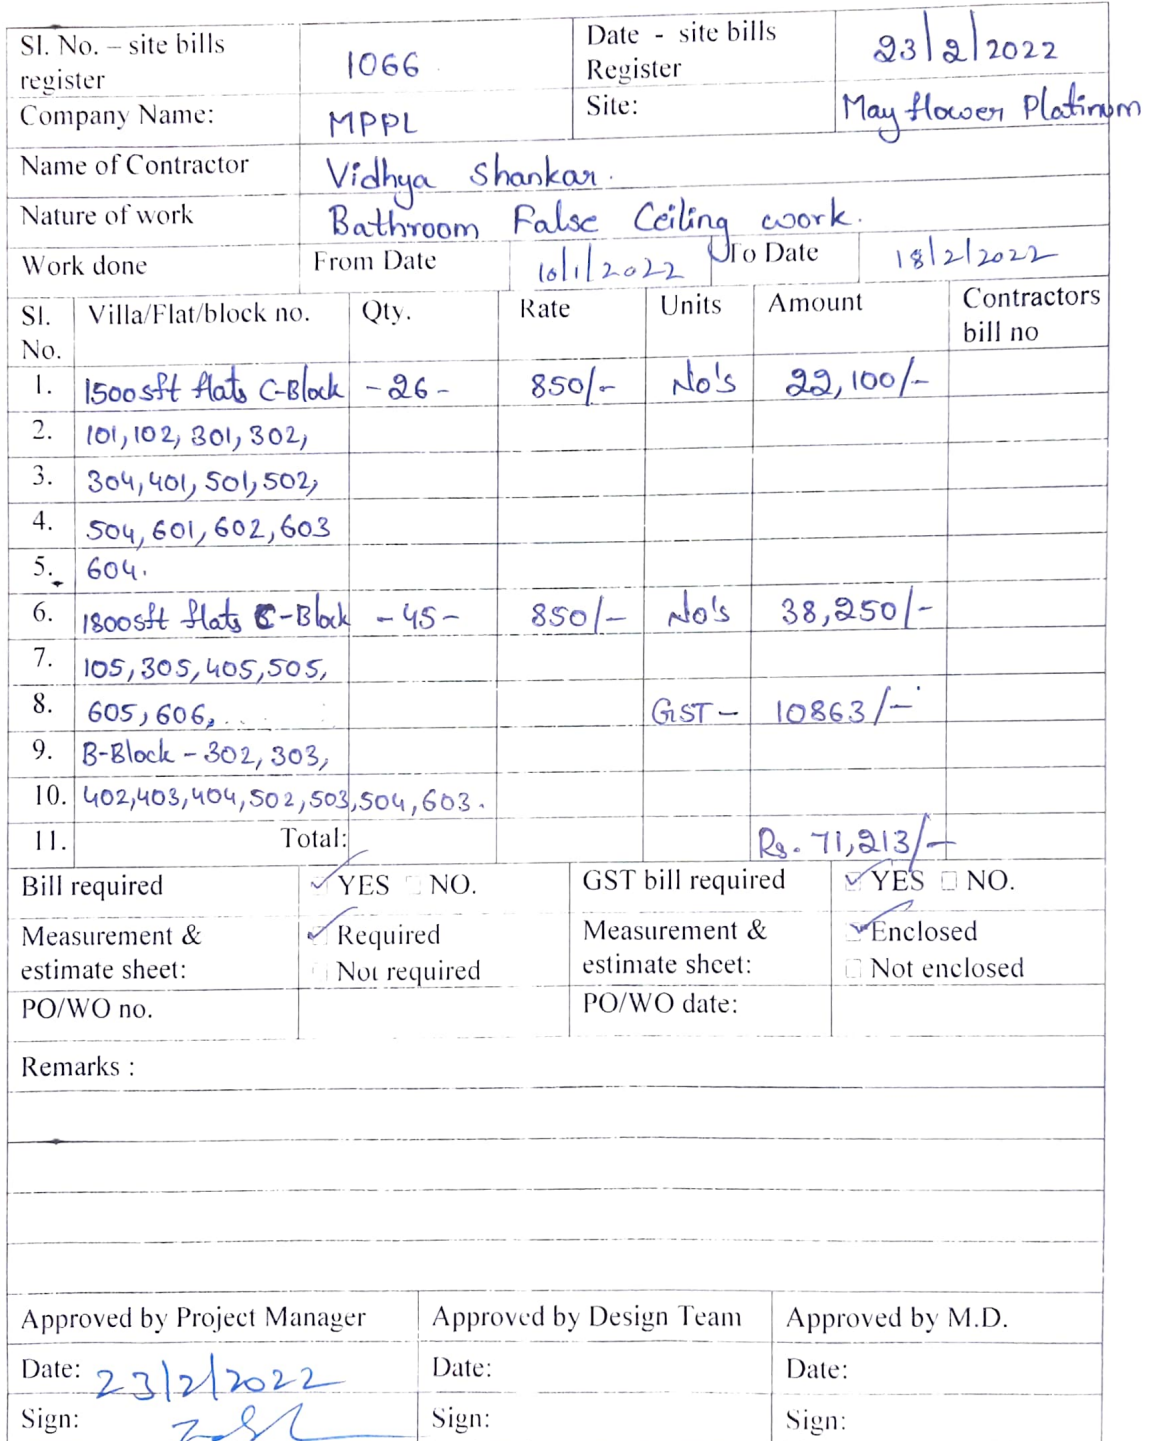 Sl. No. – site bills register 1066 Date - site bills Register 23/2/2022
Company Name: MPPL Site: Mayflower Platinum
Name of Contractor Vidhya Shankar.
Nature of work Bathroom False Ceiling work.
Work done From Date 10/1/2022 To Date 18/2/2022
Sl. No. Villa/Flat/block no. Qty. Rate Units Amount Contractors bill no
1. 1500sft flats C-Block -26- 850/- No's 22,100/-
2. 101,102, 301, 302,
3. 304,401, 501,502,
4. 504, 601, 602, 603
5. 604.
6. 1800sft flats C-Block -45- 850/- No's 38,250/-
7. 105,305,405,505,
8. 605, 606, GST - 10863/-
9. B-Block - 302, 303,
10. 402,403,404,502,503,504,603.
11. Total: Rs. 71,213/-
Bill required YES NO. GST bill required YES NO.
Measurement & estimate sheet: Required Not required Measurement & estimate sheet: Enclosed Not enclosed
PO/WO no. PO/WO date:
Remarks :
Approved by Project Manager Approved by Design Team Approved by M.D.
Date: 23/2/2022 Date: Date:
Sign: Sign: Sign: